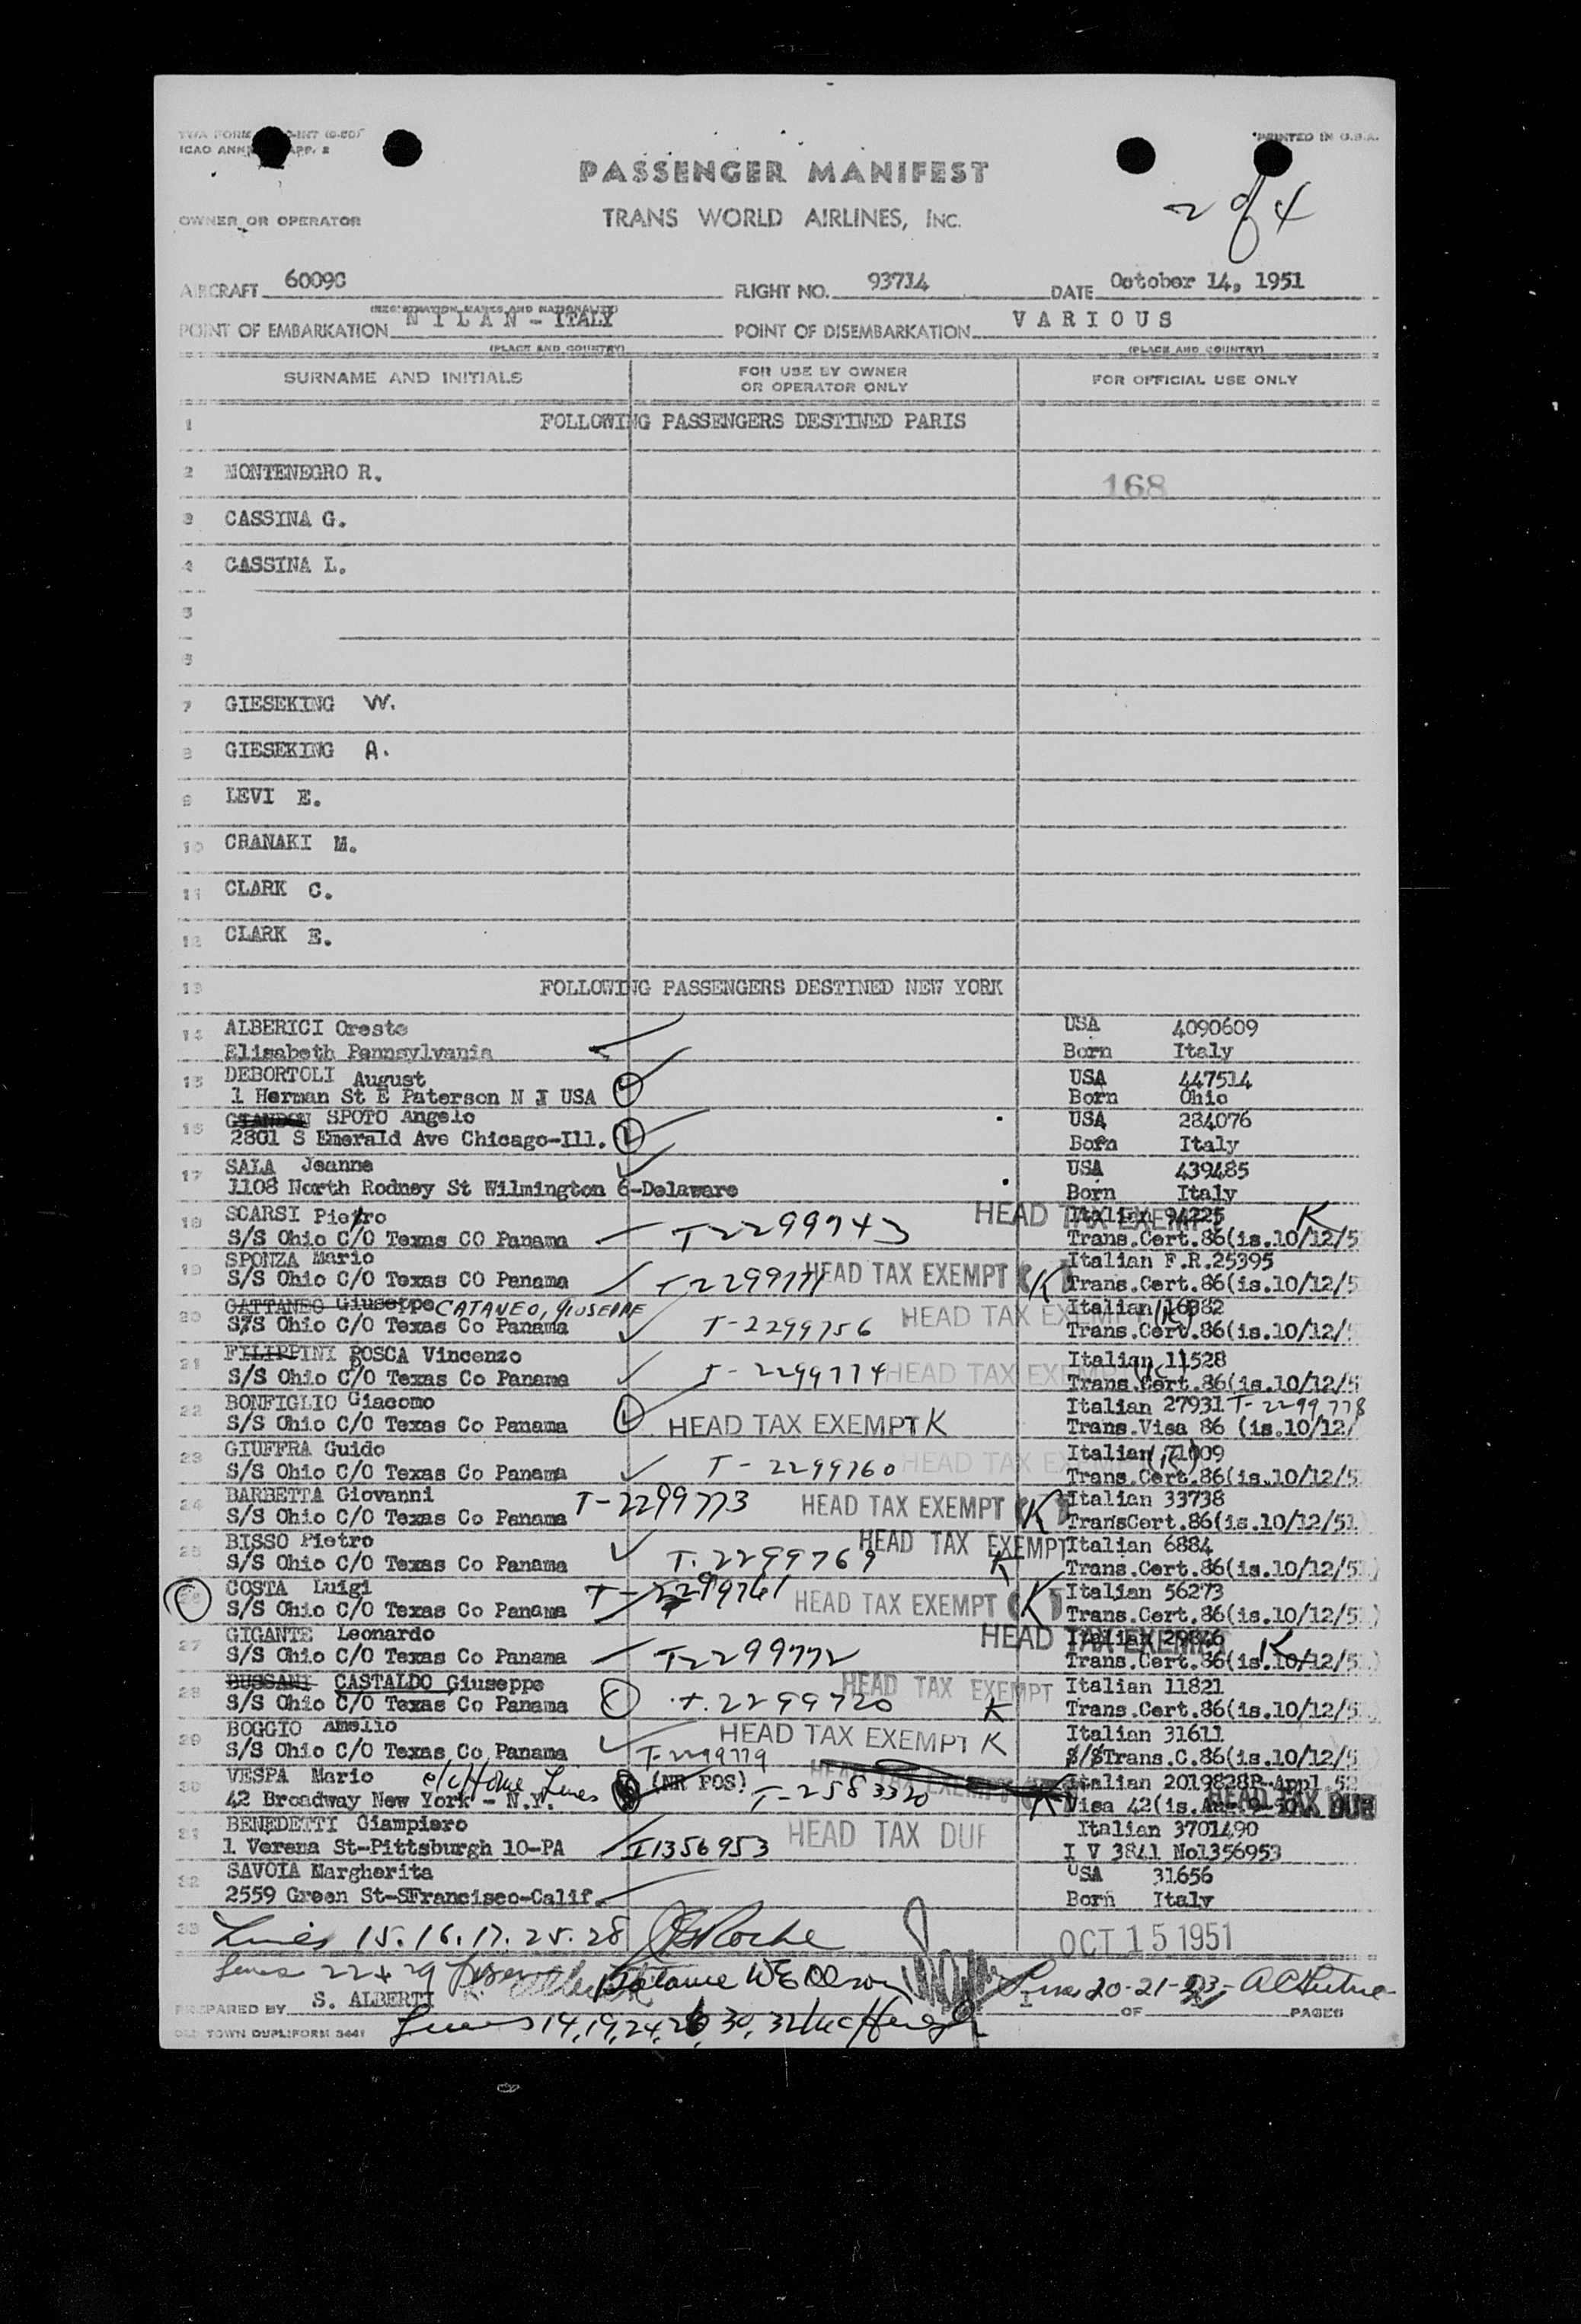 ICAO ANN APP. 2
PRINTED IN U.S.A.
PASSENGER MANIFEST
2 of 4
OWNER OR OPERATOR
TRANS WORLD AIRLINES, INC.
AIRCRAFT 6009C FLIGHT NO. 93714 DATE October 14, 1951
(REGISTRATION MARKS AND NATIONALITY)
POINT OF EMBARKATION MILAN - ITALY POINT OF DISEMBARKATION VARIOUS
(PLACE AND COUNTRY) (PLACE AND COUNTRY)
SURNAME AND INITIALS FOR USE BY OWNER OR OPERATOR ONLY FOR OFFICIAL USE ONLY
1 FOLLOWING PASSENGERS DESTINED PARIS
2 MONTENEGRO R. 168
3 CASSINA G.
4 CASSINA L.
5
6
7 GIESEKING W.
8 GIESEKING A.
9 LEVI E.
10 CRANAKI M.
11 CLARK C.
12 CLARK E.
13 FOLLOWING PASSENGERS DESTINED NEW YORK
14 ALBERICI Oreste USA 4090609
Elisabeth Pennsylvania Born Italy
15 DEBORTOLI August USA 447514
1 Herman St E Paterson N J USA Born Ohio
16 SPOTO Angelo USA 284076
2801 S Emerald Ave Chicago-Ill. Born Italy
17 SALA Jeanne USA 439485
1108 North Rodney St Wilmington 6-Delaware Born Italy
18 SCARSI Pietro HEAD TAX EXEMPT Italian 94225 K
S/S Ohio C/O Texas CO Panama T2299743 Trans.Cert.86(is.10/12/5
19 SPONZA Mario HEAD TAX EXEMPT (K) Italian F.R.25395
S/S Ohio C/O Texas CO Panama T2299771 Trans.Cert.86(is.10/12/5
20 CATTANEO Giuseppe CATANEO, GIUSEPPE HEAD TAX EXEMPT (K) Italian 16382
S/S Ohio C/O Texas Co Panama T-2299756 Trans.Cert.86(is.10/12/
21 FILIPPINI BOSCA Vincenzo Italian 11528
S/S Ohio C/O Texas Co Panama T-2299774 HEAD TAX EXEMPT (K) Trans.Cert.86(is.10/12/5
22 BONFIGLIO Giacomo Italian 27931 T-2299778
S/S Ohio C/O Texas Co Panama HEAD TAX EXEMPT K Trans.Visa 86 (is.10/12/
23 GIUFFRA Guido Italian 71009
S/S Ohio C/O Texas Co Panama T-2299760 HEAD TAX EXEMPT (K) Trans.Cert.86(is.10/12/5
24 BARBETTA Giovanni T-2299773 HEAD TAX EXEMPT (K) Italian 33738
S/S Ohio C/O Texas Co Panama TransCert.86(is.10/12/51
25 BISSO Pietro HEAD TAX EXEMPT Italian 6884
S/S Ohio C/O Texas Co Panama T.2299769 K Trans.Cert.86(is.10/12/5 )
26 COSTA Luigi T-2299761 HEAD TAX EXEMPT (K) Italian 56273
S/S Ohio C/O Texas Co Panama Trans.Cert.86(is.10/12/5 )
27 GIGANTE Leonardo HEAD TAX EXEMPT Italian 29846 K
S/S Ohio C/O Texas Co Panama T2299772 Trans.Cert.86(is.10/12/5 )
28 BUSSANI CASTALDO Giuseppe HEAD TAX EXEMPT Italian 11821
S/S Ohio C/O Texas Co Panama T.2299720 K Trans.Cert.86(is.10/12/5
29 BOGGIO Amelio HEAD TAX EXEMPT K Italian 31611
S/S Ohio C/O Texas Co Panama T-2299779 S/STrans.C.86(is.10/12/5
30 VESPA Mario c/o Home Lines (NR POS) HEAD TAX EXEMPT K Italian 2019828P-Appl.52
42 Broadway New York - N.Y. T-2583320 Visa 42(is.Aug. HEAD TAX DUE
31 BENEDETTI Giampiero HEAD TAX DUE Italian 3701490
1 Verena St-Pittsburgh 10-PA I1356953 I V 3841 No1356953
32 SAVOIA Margherita USA 31656
2559 Green St-SFrancisco-Calif. Born Italy
33 Lines 15.16.17.25.28 OCT 15 1951
Lines 22 + 29 Balance WE Olson Lines 20-21-23-
PREPARED BY S. ALBERTI OF PAGES
OLD TOWN DUPLIFORM 3441 Lines 14,19,24,26,30,32